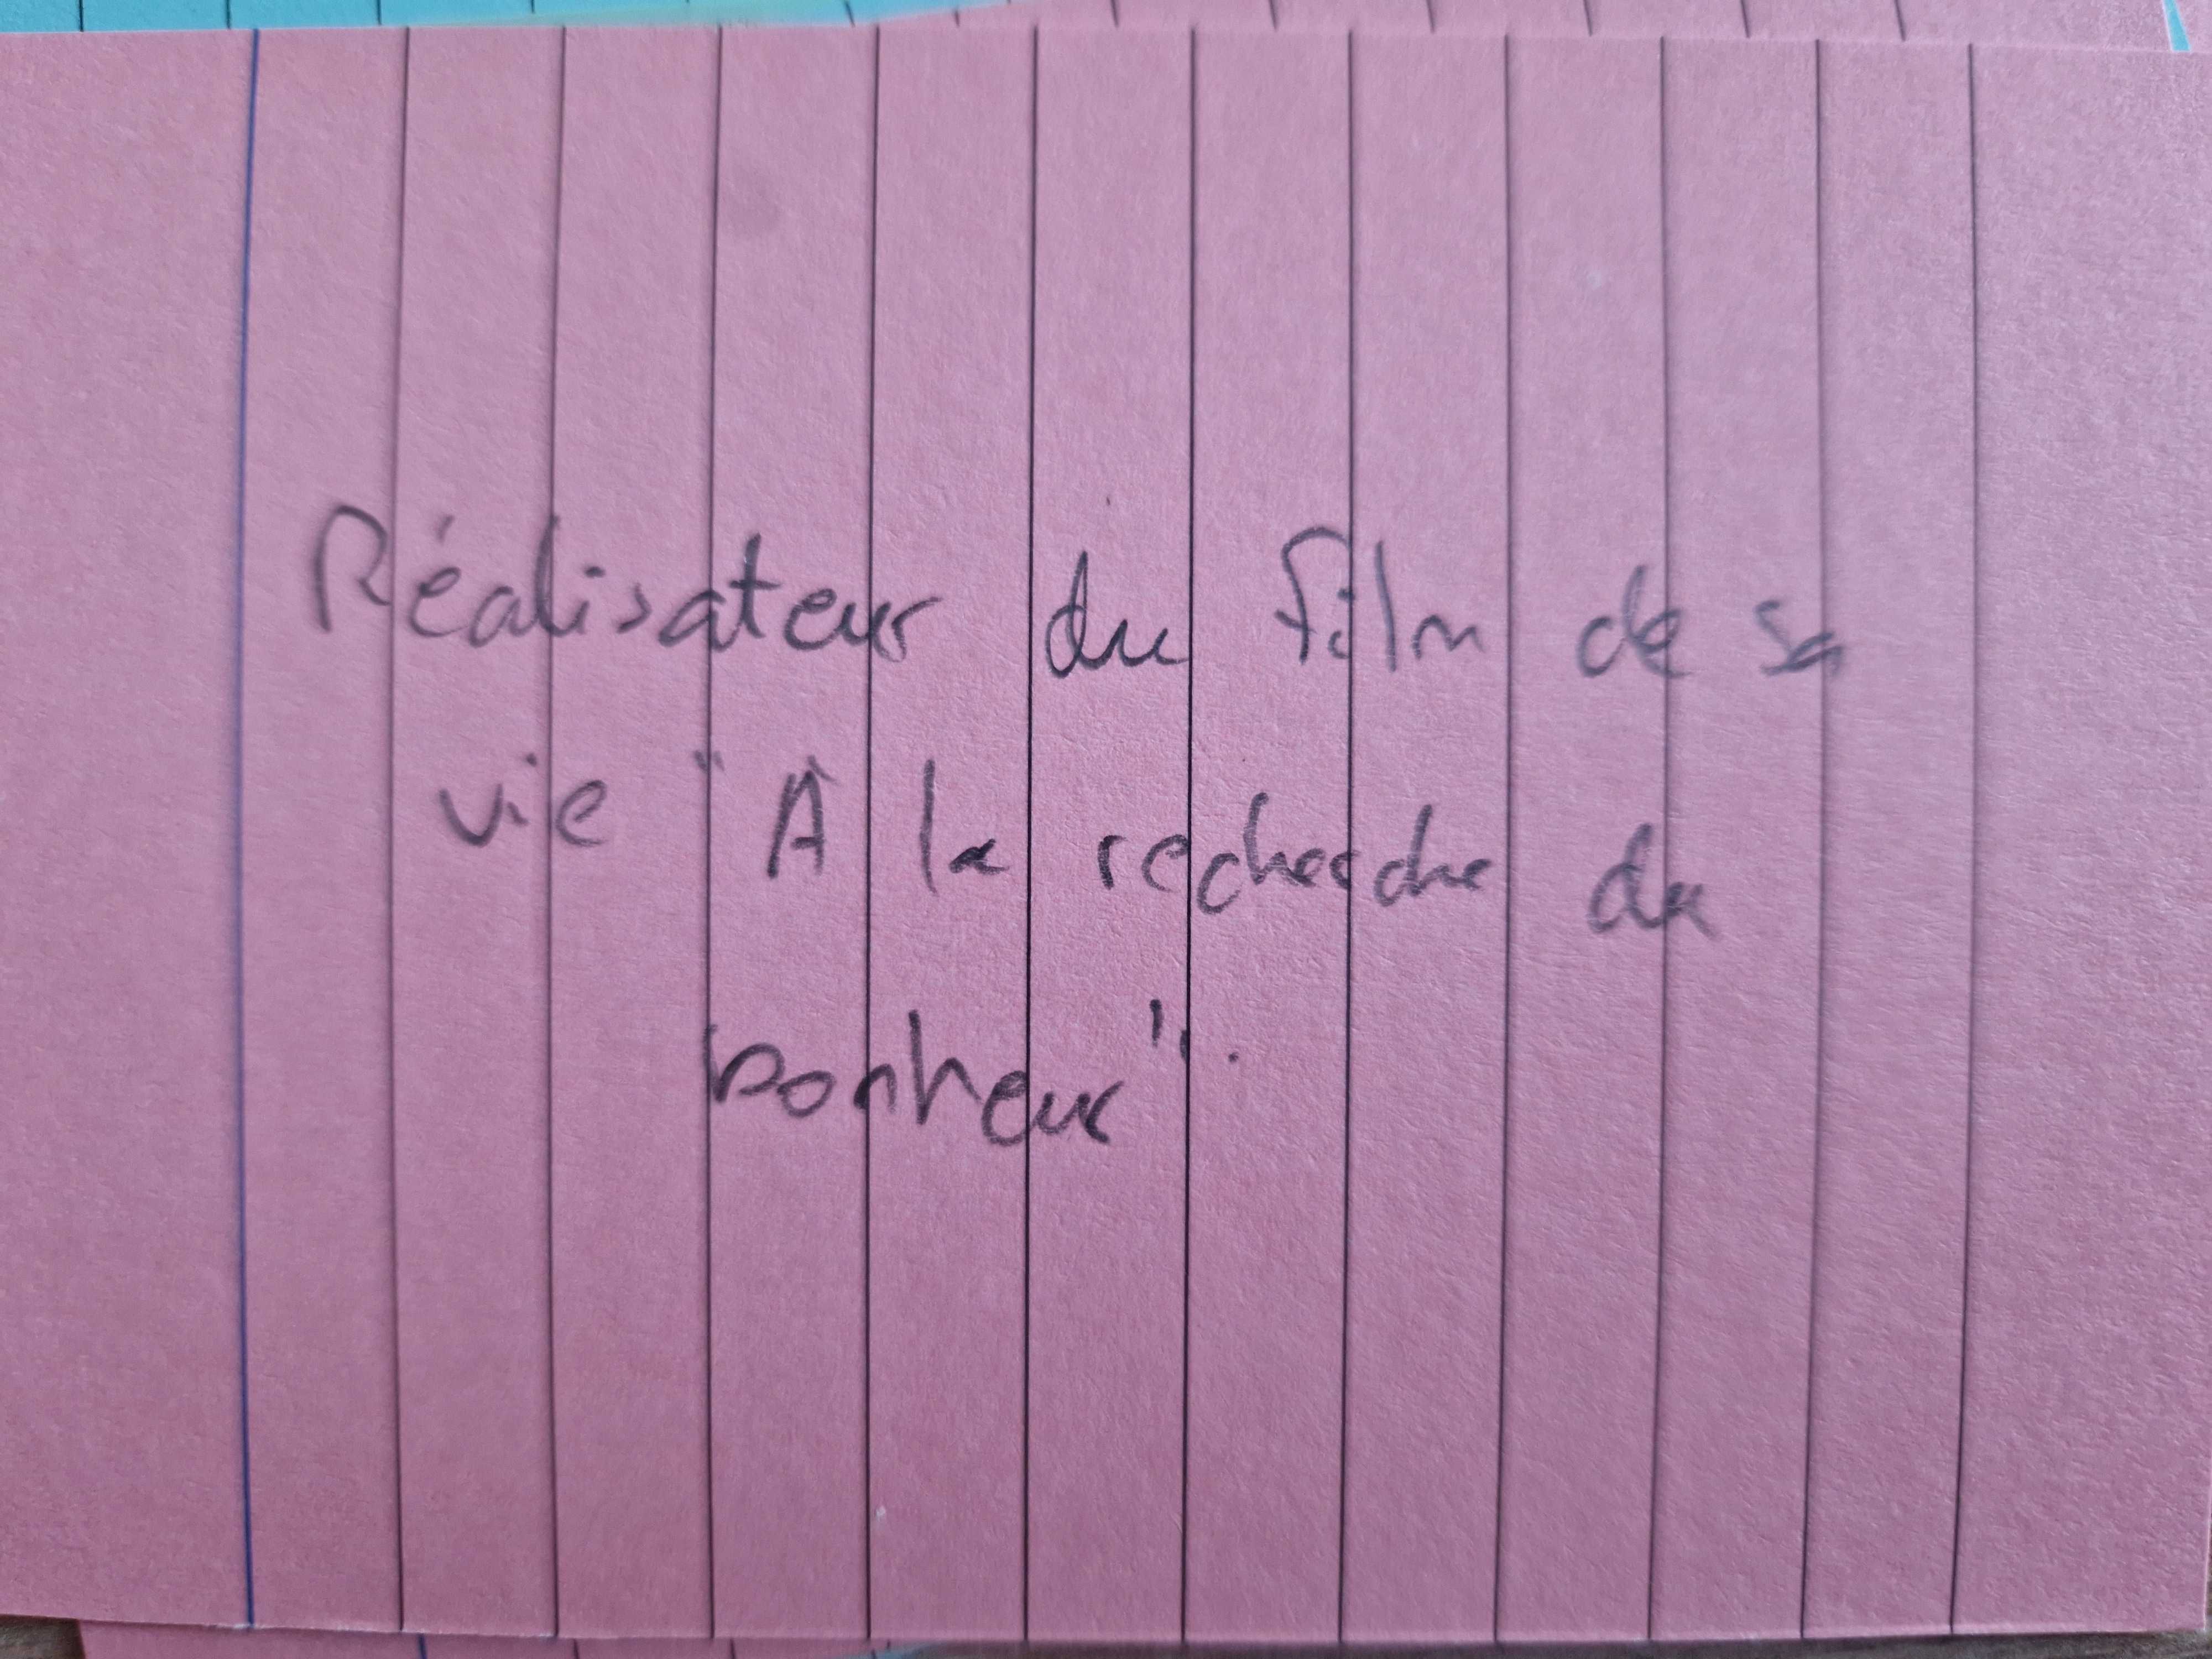 Réalisateur du film de sa
vie "À la recherche du
bonheur".